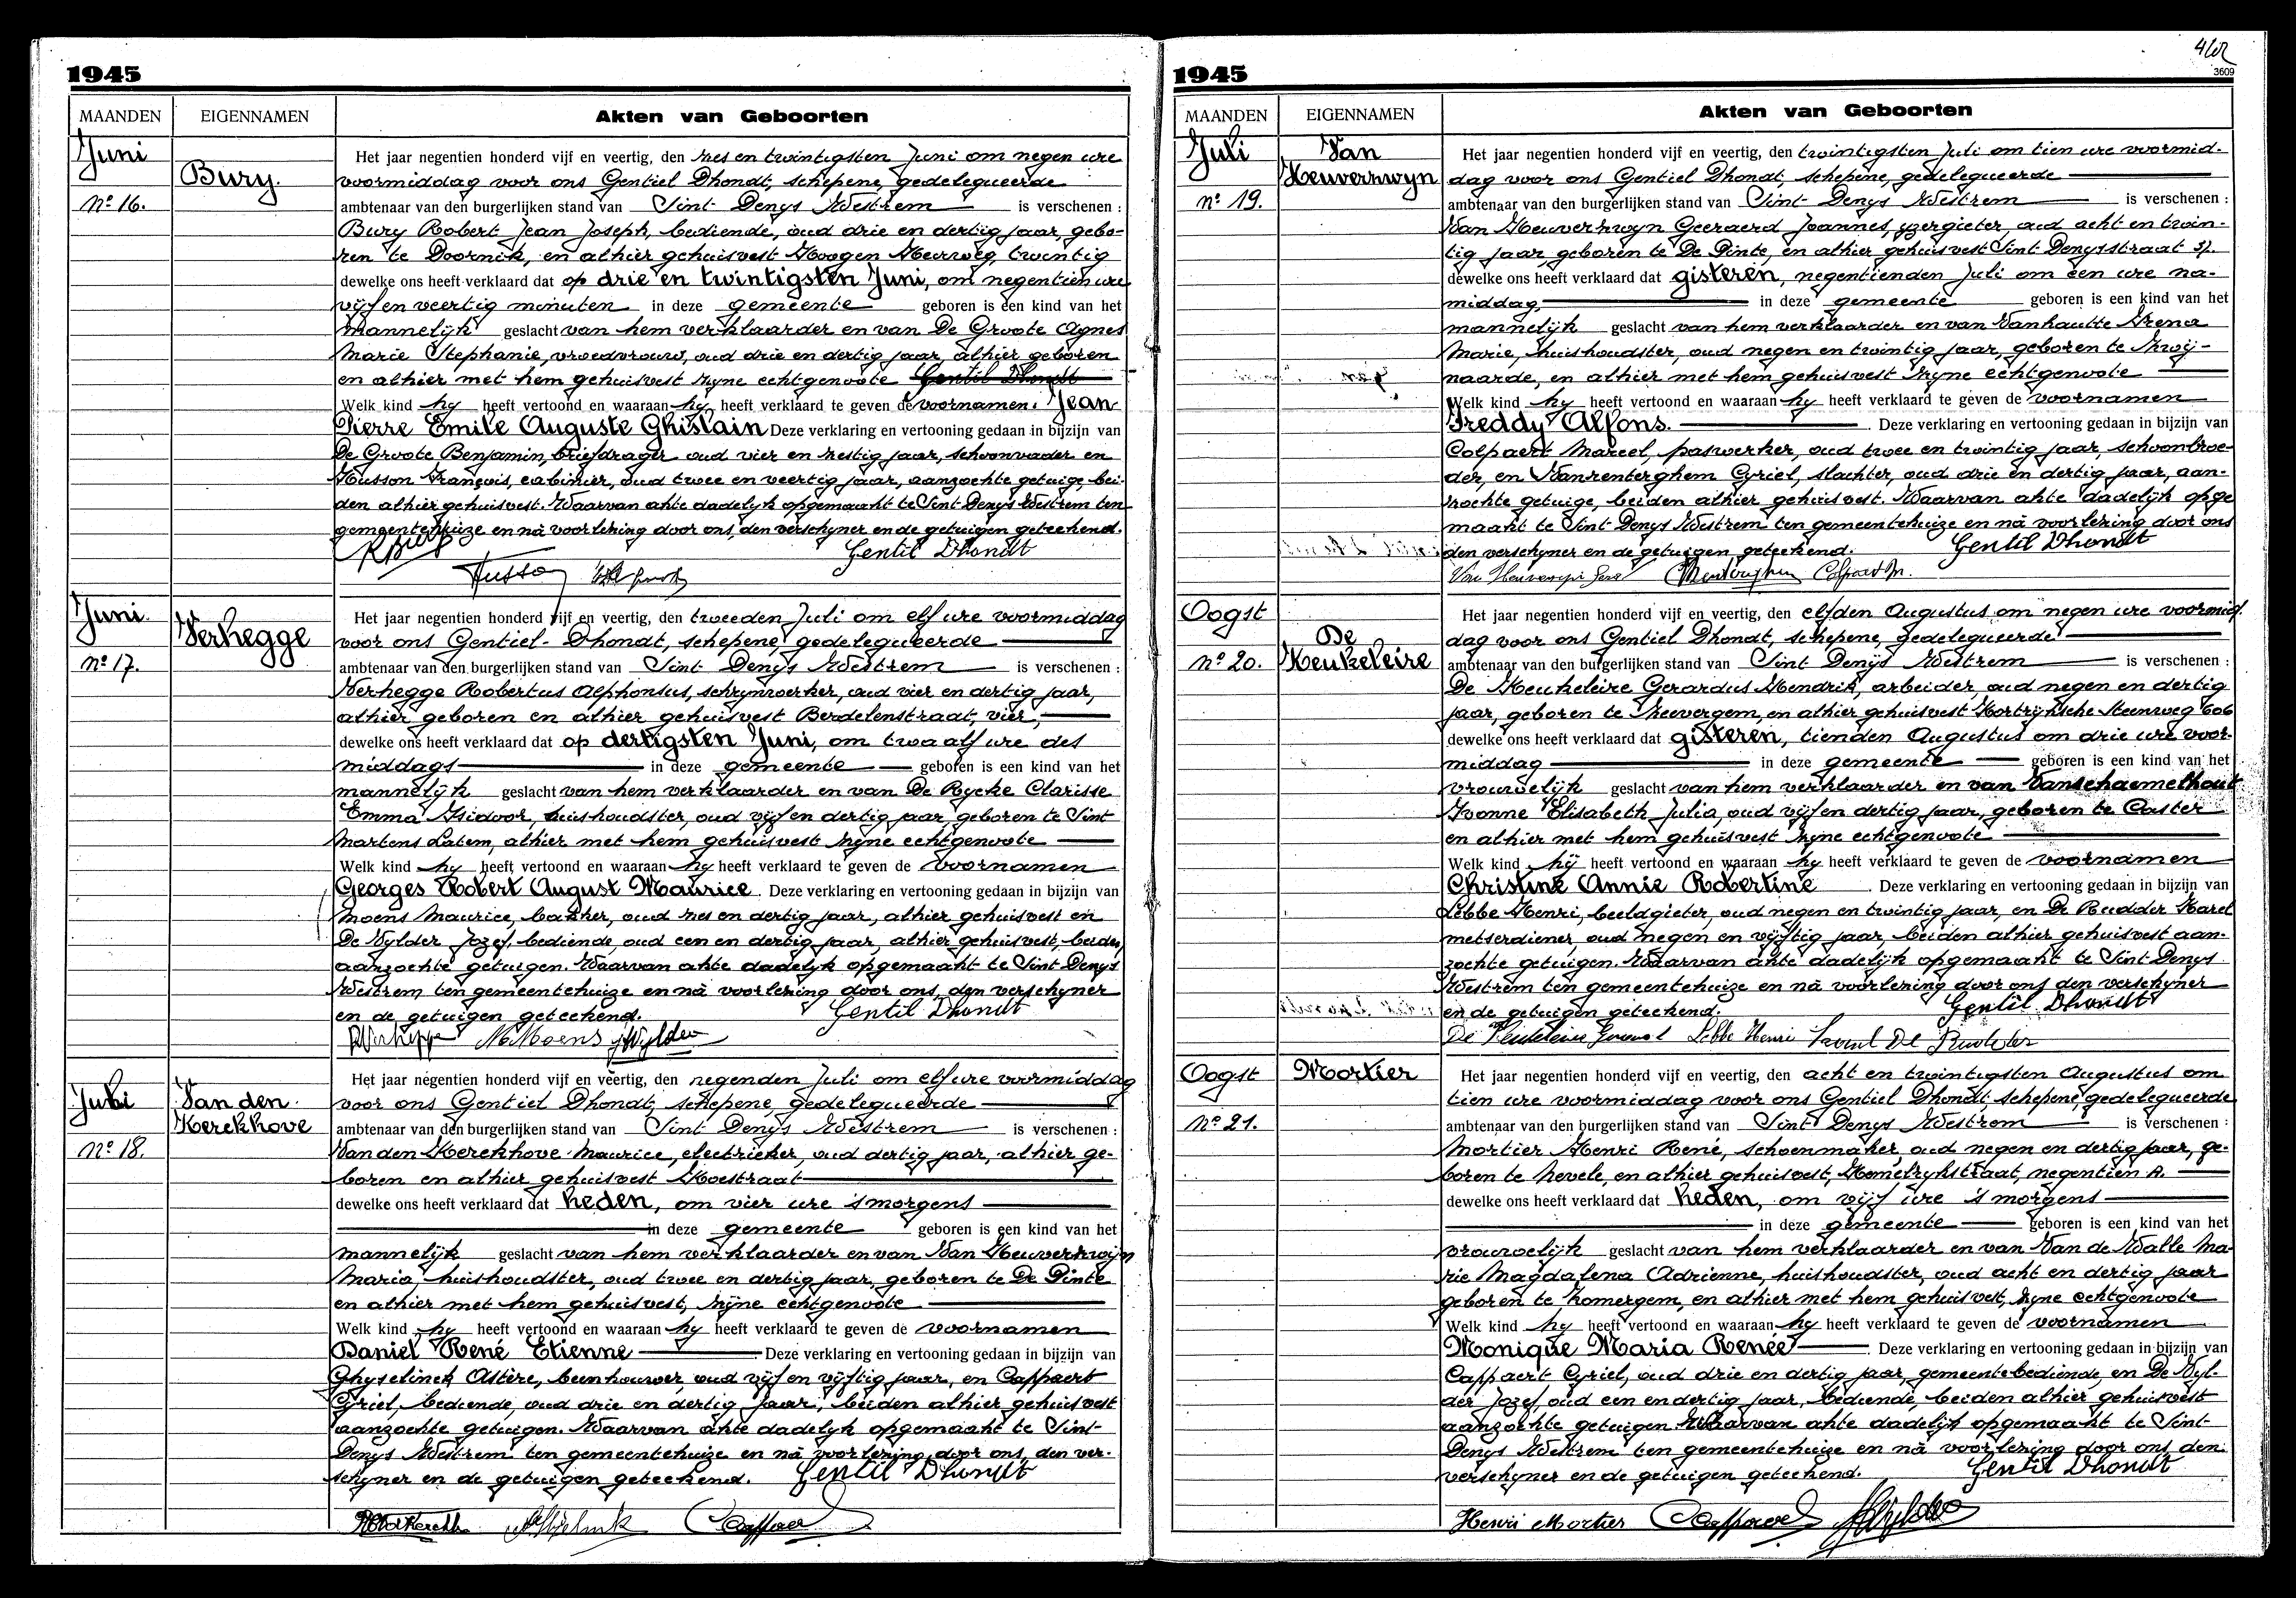 1945
MAANDEN EIGENNAMEN Akten van Geboorten
Juni
Bury.
Nº 16.
Het jaar negentien honderd vijf en veertig, den zes en twintigsten Juni om negen ure
voormiddag voor ons Gentiel Dhondt, schepene, gedelegueerde
ambtenaar van den burgerlijken stand van Sint Denys Westrem is verschenen :
Bury Robert Jean Joseph, bediende, oud drie en dertig jaar, gebo-
ren te Doornik, en alhier gehuisvest Hoogen Heerweg, twintig
dewelke ons heeft verklaard dat op drie en twintigsten Juni, om negentien ure
vijf en veertig minuten in deze gemeente geboren is een kind van het
mannelijk geslacht van hem verklaarder en van De Groote Agnes
Marie Stephanie, vroedvrouw, oud drie en dertig jaar, alhier geboren
en alhier met hem gehuisvest zyne echtgenoote Gentil Dhondt
Welk kind hy heeft vertoond en waaraan hy heeft verklaard te geven de voornamen. Jean
Pierre Emile Auguste Ghislain Deze verklaring en vertooning gedaan in bijzijn van
De Groote Benjamin, briefdrager oud vier en zestig jaar, schoonvader en
Husson François, cabinier, oud twee en veertig jaar, aanzochte getuige bei-
den alhier gehuisvest. Waarvan akte dadelyk opgemaakt te Sint Denys Westrem ten
gemeentehuize en nà voorlezing door ons, den verschyner en de getuigen geteekend.
RBury Gentil Dhondt
Husson
Juni
Verhegge
Nº 17.
Het jaar negentien honderd vijf en veertig, den tweeden Juli om elf ure voormiddag
voor ons Gentiel Dhondt, schepene, gedelegueerde
ambtenaar van den burgerlijken stand van Sint Denys Westrem is verschenen :
Verhegge Robertus Alphonsus, schrynwerker, oud vier en dertig jaar,
alhier geboren en alhier gehuisvest Berdelenstraat, vier,
dewelke ons heeft verklaard dat op dertigsten Juni, om twaalf ure des
middags in deze gemeente geboren is een kind van het
mannelijk geslacht van hem verklaarder en van De Rycke Clarisse
Emma Isidoor, huishoudster, oud vijf en dertig jaar, geboren te Sint
Martens Latem, alhier met hem gehuisvest zyne echtgenoote
Welk kind hy heeft vertoond en waaraan hy heeft verklaard te geven de voornamen
Georges Robert August Maurice. Deze verklaring en vertooning gedaan in bijzijn van
Moens Maurice, bakker, oud zes en dertig jaar, alhier gehuisvest en
De Wylder Jozef, bediende, oud een en dertig jaar, alhier gehuisvest, beiden
aanzochte getuigen. Waarvan akte dadelyk opgemaakt te Sint Denys
Westrem ten gemeentehuize en nà voorlezing door ons, den verschyner
en de getuigen geteekend. Gentil Dhondt
RVerhegge MMoens JWylder
Juli
Van den
Kerckhove
Nº 18.
Het jaar negentien honderd vijf en veertig, den negenden Juli om elf ure voormiddag
voor ons Gentiel Dhondt, schepene, gedelegueerde
ambtenaar van den burgerlijken stand van Sint Denys Westrem is verschenen :
Van den Kerckhove Maurice, electrieker, oud dertig jaar, alhier ge-
boren en alhier gehuisvest Koestraat
dewelke ons heeft verklaard dat heden, om vier ure 's morgens
in deze gemeente geboren is een kind van het
mannelijk geslacht van hem verklaarder en van Van Heuverzwijn
Maria, huishoudster, oud twee en dertig jaar, geboren te De Pinte
en alhier met hem gehuisvest, zyne echtgenoote
Welk kind hy heeft vertoond en waaraan hy heeft verklaard te geven de voornamen
Daniel René Etienne Deze verklaring en vertooning gedaan in bijzijn van
Ghyselinck Astère, beenhouwer, oud vijf en vijftig jaar, en Cappaert
Cyriel, bediende, oud drie en dertig jaar, beiden alhier gehuisvest
aanzochte getuigen. Waarvan akte dadelyk opgemaakt te Sint-
Denys Westrem ten gemeentehuize en nà voorlezing door ons, den ver-
schyner en de getuigen geteekend. Gentil Dhondt
Cappaert
3609
1945
MAANDEN EIGENNAMEN Akten van Geboorten
Juli
Van
Heuverzwyn
Nº 19.
Het jaar negentien honderd vijf en veertig, den twintigsten Juli om tien ure voormid-
dag voor ons Gentiel Dhondt, schepene, gedelegueerde
ambtenaar van den burgerlijken stand van Sint Denys Westrem is verschenen :
Van Heuverzwyn Geeraerd Joannes, yzergieter, oud acht en twin-
tig jaar, geboren te De Pinte, en alhier gehuisvest Sint Denysstraat 37.
dewelke ons heeft verklaard dat gisteren, negentienden Juli om een ure na-
middag, in deze gemeente geboren is een kind van het
mannelijk geslacht van hem verklaarder en van Vanhautte Irena
Marie, huishoudster, oud negen en twintig jaar, geboren te Zwij-
naarde, en alhier met hem gehuisvest zyne echtgenoote
Welk kind hy heeft vertoond en waaraan hy heeft verklaard te geven de voornamen
Freddy Alfons. Deze verklaring en vertooning gedaan in bijzijn van
Colpaert Marcel, paswerker, oud twee en twintig jaar, schoonbroe-
der, en Vanrenterghem Cyriel, slachter, oud drie en dertig jaar, aan-
zochte getuige, beiden alhier gehuisvest. Waarvan akte dadelijk opge
maakt te Sint Denys Westrem ten gemeentehuize en nà voorlezing door ons
den verschyner en de getuigen geteekend. Gentil Dhondt
Colpaert M.
Oogst
De
Keukeleire
Nº 20.
Het jaar negentien honderd vijf en veertig, den elfden Augustus om negen ure voormid.
dag voor ons Gentiel Dhondt, schepene, gedelegueerde
ambtenaar van den burgerlijken stand van Sint Denys Westrem is verschenen :
De Keukeleire Gerardus Hendrik, arbeider, oud negen en dertig
jaar, geboren te Zeevergem, en alhier gehuisvest Kortrijksche Steenweg 606
dewelke ons heeft verklaard dat gisteren, tienden Augustus om drie ure voor-
middag in deze gemeente geboren is een kind van het
vrouwelijk geslacht van hem verklaarder en van Vanschaemelhout
Yvonne Elisabeth Julia, oud vijf en dertig jaar, geboren te Caster
en alhier met hem gehuisvest zyne echtgenoote
Welk kind hij heeft vertoond en waaraan hy heeft verklaard te geven de voornamen
Christine Annie Robertine Deze verklaring en vertooning gedaan in bijzijn van
Lebbe Henri, beeldgieter, oud negen en twintig jaar, en De Rudder Karel
metserdiener, oud negen en vijftig jaar, beiden alhier gehuisvest aan-
zochte getuigen. Waarvan akte dadelijk opgemaakt te Sint Denys
Westrem ten gemeentehuize en nà voorlezing door ons den verschyner
en de getuigen geteekend. Gentil Dhondt
De Keukeleire Gerard Lebbe Henri
Oogst
Mortier
Nº 21.
Het jaar negentien honderd vijf en veertig, den acht en twintigsten Augustus om
tien ure voormiddag voor ons Gentiel Dhondt, schepene, gedelegueerde
ambtenaar van den burgerlijken stand van Sint Denys Westrem is verschenen :
Mortier Henri René, schoenmaker, oud negen en dertig jaar, ge-
boren te Nevele, en alhier gehuisvest, Hemelrykstraat, negentien A.
dewelke ons heeft verklaard dat heden, om vijf ure 's morgens
in deze gemeente geboren is een kind van het
vrouwelijk geslacht van hem verklaarder en van Van de Walle Ma-
rie Magdalena Adrienne, huishoudster, oud acht en dertig jaar
geboren te Zomergem, en alhier met hem gehuisvest, zyne echtgenoote
Welk kind hy heeft vertoond en waaraan hy heeft verklaard te geven de voornamen
Monique Maria Renée Deze verklaring en vertooning gedaan in bijzijn van
Cappaert Cyriel, oud drie en dertig jaar, gemeentebediende, en De Wyl-
der Jozef, oud een en dertig jaar, bediende, beiden alhier gehuisvest
aanzochte getuigen. Waarvan akte dadelijk opgemaakt te Sint
Denys Westrem ten gemeentehuize en nà voorlezing door ons, den
verschyner en de getuigen geteekend. Gentil Dhondt
Henri Mortier Cappaert